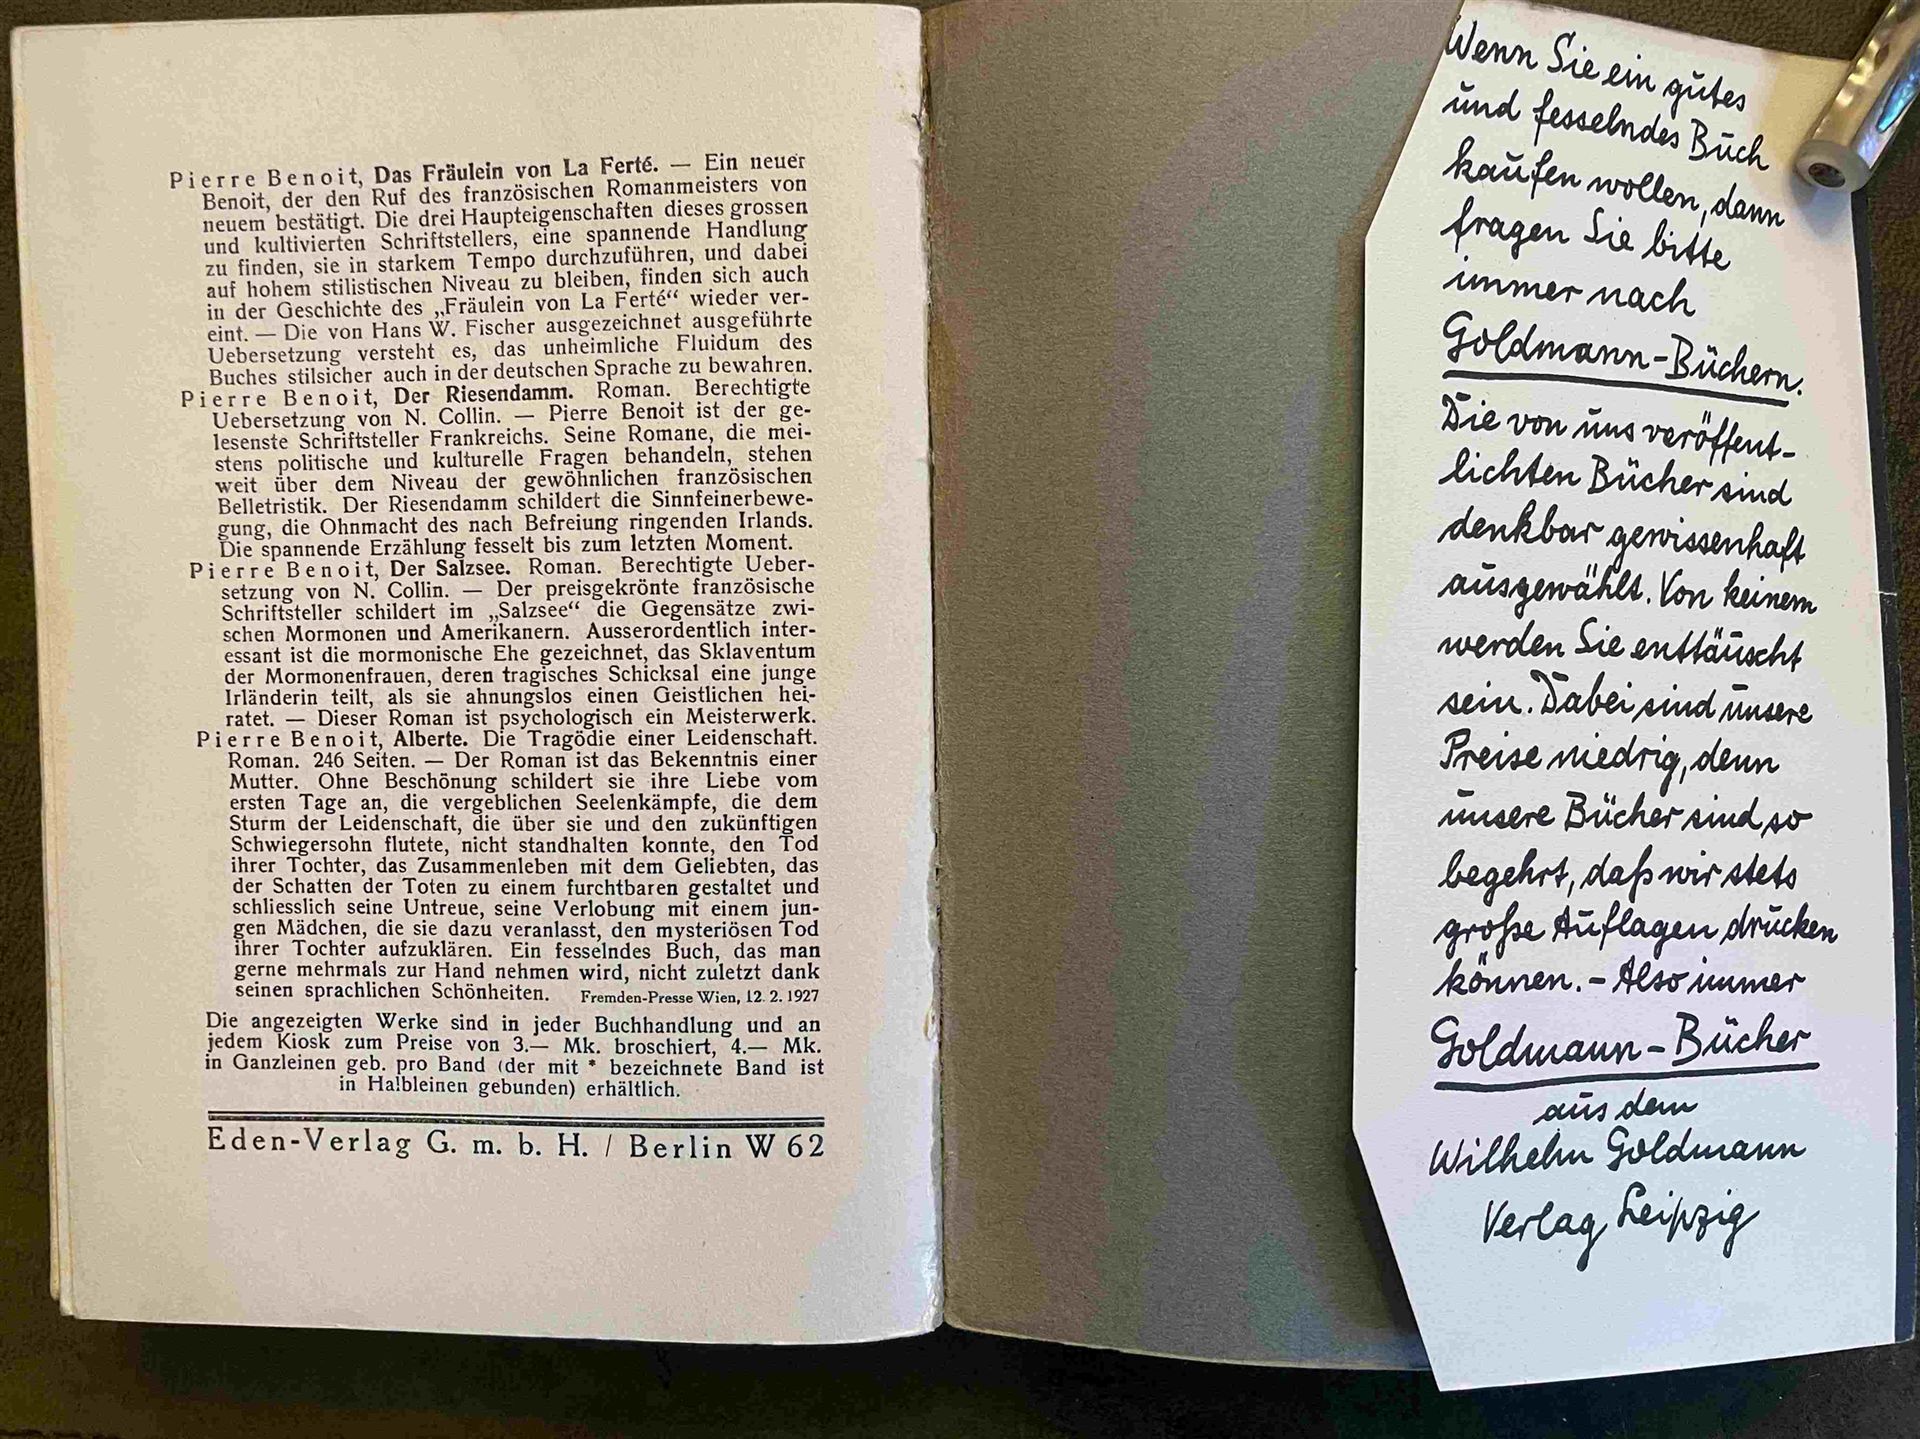 Pierre Benoit, Das Fräulein von La Ferté. — Ein neuer
Benoit, der den Ruf des französischen Romanmeisters von
neuem bestätigt. Die drei Haupteigenschaften dieses grossen
und kultivierten Schriftstellers, eine spannende Handlung
zu finden, sie in starkem Tempo durchzuführen, und dabei
auf hohem stilistischen Niveau zu bleiben, finden sich auch
in der Geschichte des „Fräulein von La Ferté“ wieder ver-
eint. — Die von Hans W. Fischer ausgezeichnet ausgeführte
Uebersetzung versteht es, das unheimliche Fluidum des
Buches stilsicher auch in der deutschen Sprache zu bewahren.
Pierre Benoit, Der Riesendamm. Roman. Berechtigte
Uebersetzung von N. Collin. — Pierre Benoit ist der ge-
lesenste Schriftsteller Frankreichs. Seine Romane, die mei-
stens politische und kulturelle Fragen behandeln, stehen
weit über dem Niveau der gewöhnlichen französischen
Belletristik. Der Riesendamm schildert die Sinnfeinerbewe-
gung, die Ohnmacht des nach Befreiung ringenden Irlands.
Die spannende Erzählung fesselt bis zum letzten Moment.
Pierre Benoit, Der Salzsee. Roman. Berechtigte Ueber-
setzung von N. Collin. — Der preisgekrönte französische
Schriftsteller schildert im „Salzsee“ die Gegensätze zwi-
schen Mormonen und Amerikanern. Ausserordentlich inter-
essant ist die mormonische Ehe gezeichnet, das Sklaventum
der Mormonenfrauen, deren tragisches Schicksal eine junge
Irländerin teilt, als sie ahnungslos einen Geistlichen hei-
ratet. — Dieser Roman ist psychologisch ein Meisterwerk.
Pierre Benoit, Alberte. Die Tragödie einer Leidenschaft.
Roman. 246 Seiten. — Der Roman ist das Bekenntnis einer
Mutter. Ohne Beschönung schildert sie ihre Liebe vom
ersten Tage an, die vergeblichen Seelenkämpfe, die dem
Sturm der Leidenschaft, die über sie und den zukünftigen
Schwiegersohn flutete, nicht standhalten konnte, den Tod
ihrer Tochter, das Zusammenleben mit dem Geliebten, das
der Schatten der Toten zu einem furchtbaren gestaltet und
schliesslich seine Untreue, seine Verlobung mit einem jun-
gen Mädchen, die sie dazu veranlasst, den mysteriösen Tod
ihrer Tochter aufzuklären. Ein fesselndes Buch, das man
gerne mehrmals zur Hand nehmen wird, nicht zuletzt dank
seinen sprachlichen Schönheiten. Fremden-Presse Wien, 12. 2. 1927
Die angezeigten Werke sind in jeder Buchhandlung und an
jedem Kiosk zum Preise von 3.— Mk. broschiert, 4.— Mk.
in Ganzleinen geb. pro Band (der mit * bezeichnete Band ist
in Halbleinen gebunden) erhältlich.
Eden-Verlag G. m. b. H. / Berlin W 62
Wenn Sie ein gutes
und fesselndes Buch
kaufen wollen, dann
fragen Sie bitte
immer nach
Goldmann-Büchern.
Die von uns veröffent-
lichten Bücher sind
denkbar gewissenhaft
ausgewählt. Von keinem
werden Sie enttäuscht
sein. Dabei sind unsere
Preise niedrig, denn
unsere Bücher sind so
begehrt, daß wir stets
große Auflagen drucken
können. – Also immer
Goldmann-Bücher
aus dem
Wilhelm Goldmann
Verlag Leipzig